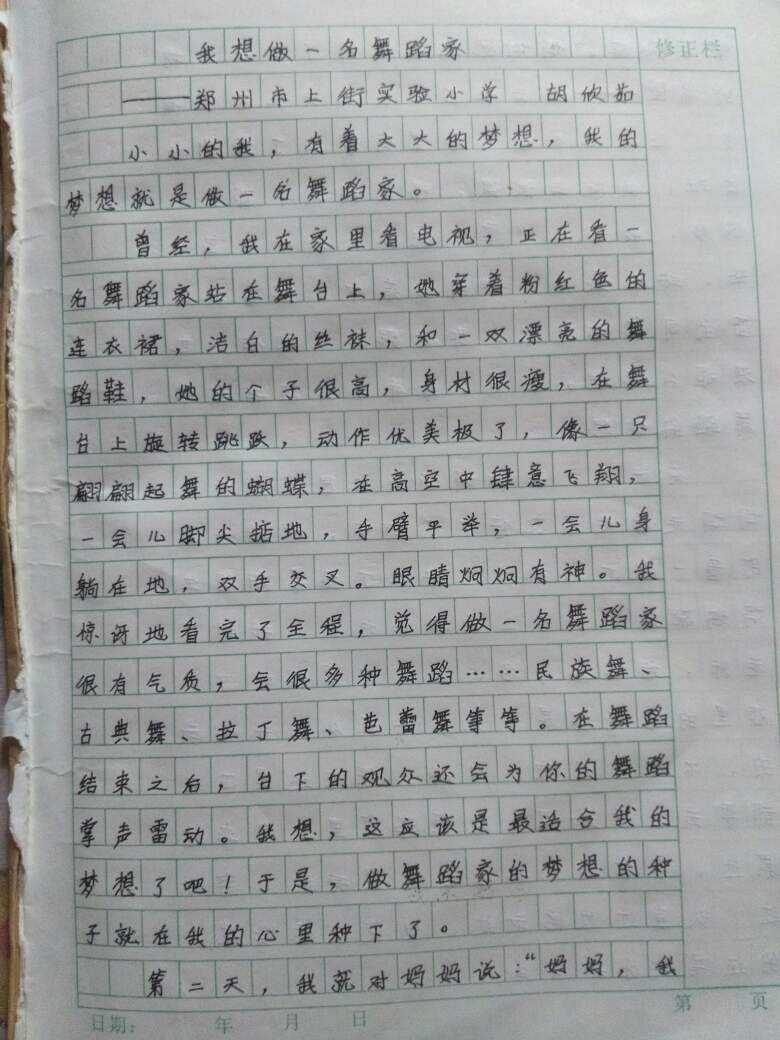 我想做一名舞蹈家
修正栏
——郑州市上街实验小学 胡欣茹
小小的我，有着大大的梦想，我的
梦想就是做一名舞蹈家。
曾经，我在家里看电视，正在看一
名舞蹈家站在舞台上，她穿着粉红色的
连衣裙，洁白的丝袜，和一双漂亮的舞
蹈鞋，她的个子很高，身材很瘦，在舞
台上旋转跳跃，动作优美极了，像一只
翩翩起舞的蝴蝶，在高空中肆意飞翔，
一会儿脚尖掂地，手臂平举，一会儿身
躺在地，双手交叉。眼睛炯炯有神。我
惊讶地看完了全程，觉得做一名舞蹈家
很有气质，会很多种舞蹈……民族舞、
古典舞、拉丁舞、芭蕾舞等等。在舞蹈
结束之后，台下的观众还会为你的舞蹈
掌声雷动。我想，这应该是最适合我的
梦想了吧！于是，做舞蹈家的梦想的种
子就在我的心里种下了。
第二天，我就对妈妈说：“妈妈，我
日期： 年 月 日
第 页